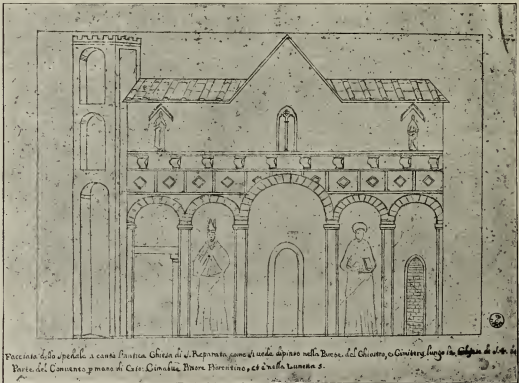 Facciata dello Spedale a canto l'antica Chiesa di S. Reparata come si vede dipinto nella Borsa del Chiostro, e Cimitero lungo la Chiesa di S.
Parte del Convento p mano di Gio: Cimabue Pittore Fiorentino, et è nella Lunetta 5.